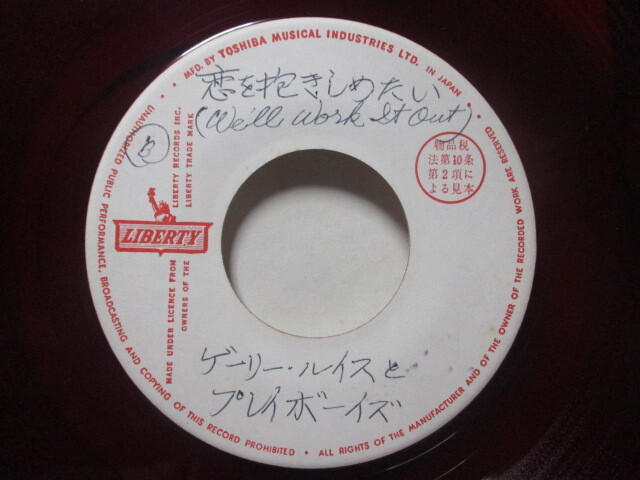 • MFD. BY TOSHIBA MUSICAL INDUSTRIES LTD. IN JAPAN •
恋を抱きしめたい
(We'll Work It Out)
B
LIBERTY RECORDS INC.
LIBERTY TRADE MARK
物品税
法第10条
第2項に
よる見本
LIBERTY
MADE UNDER LICENCE FROM
OWNERS OF THE
ゲーリー・ルイスと
プレイボーイズ
UNAUTHORIZED PUBLIC PERFORMANCE, BROADCASTING AND COPYING OF THIS RECORD PROHIBITED • ALL RIGHTS OF THE MANUFACTURER AND OF THE OWNER OF THE RECORDED WORK ARE RESERVED